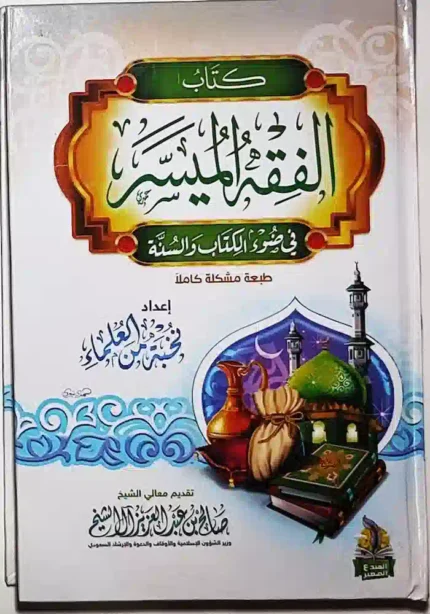 كتاب
الفقه الميسر
في ضوء الكتاب والسنة
طبعة مشكلة كاملا
إعداد
نخبة من العلماء
تقديم معالي الشيخ
صالح بن عبد العزيز آل الشيخ
وزير الشؤون الإسلامية والأوقاف والدعوة والإرشاد السعودي